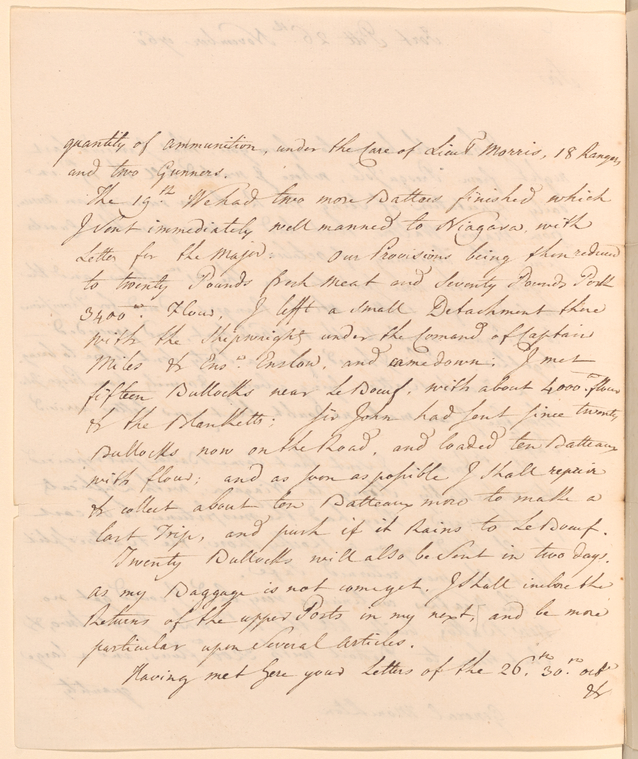 quantity of ammunition, under the Care of Lieut Morris, 18 Rangers
and two Gunners.
The 19.th We had two more Battoes finished which
I Sent immediately well manned to Niagara with
Letter for the Major; Our Provisions being then reduced
to twenty Pounds fresh meat and Seventy Pounds Pork
3400 wt. Flour, I lefft a Small Detachment there
with the Shipwrights under the Comand of Captain
Miles & Ens.n Enslow, and came down; I met
fifteen Bullocks near Le Boeuf, with about 4000 Flour
& the Blanketts; Sir John had Sent Since twenty
Bullocks now on the Road, and loaded ten Batteaux
with flour; and as soon as possible I shall repair
& collect about ten Batteaux more to make a
last Trip, and push if it Rains to Le Boeuf.
Twenty Bullocks will also be Sent in two days.
as my Baggage is not come yet. I Shall inclose the
Returns of the upper Posts in my next, and be more
particular upon Several Articles.
Having met here your Letters of the 26.th 30.th octr
&